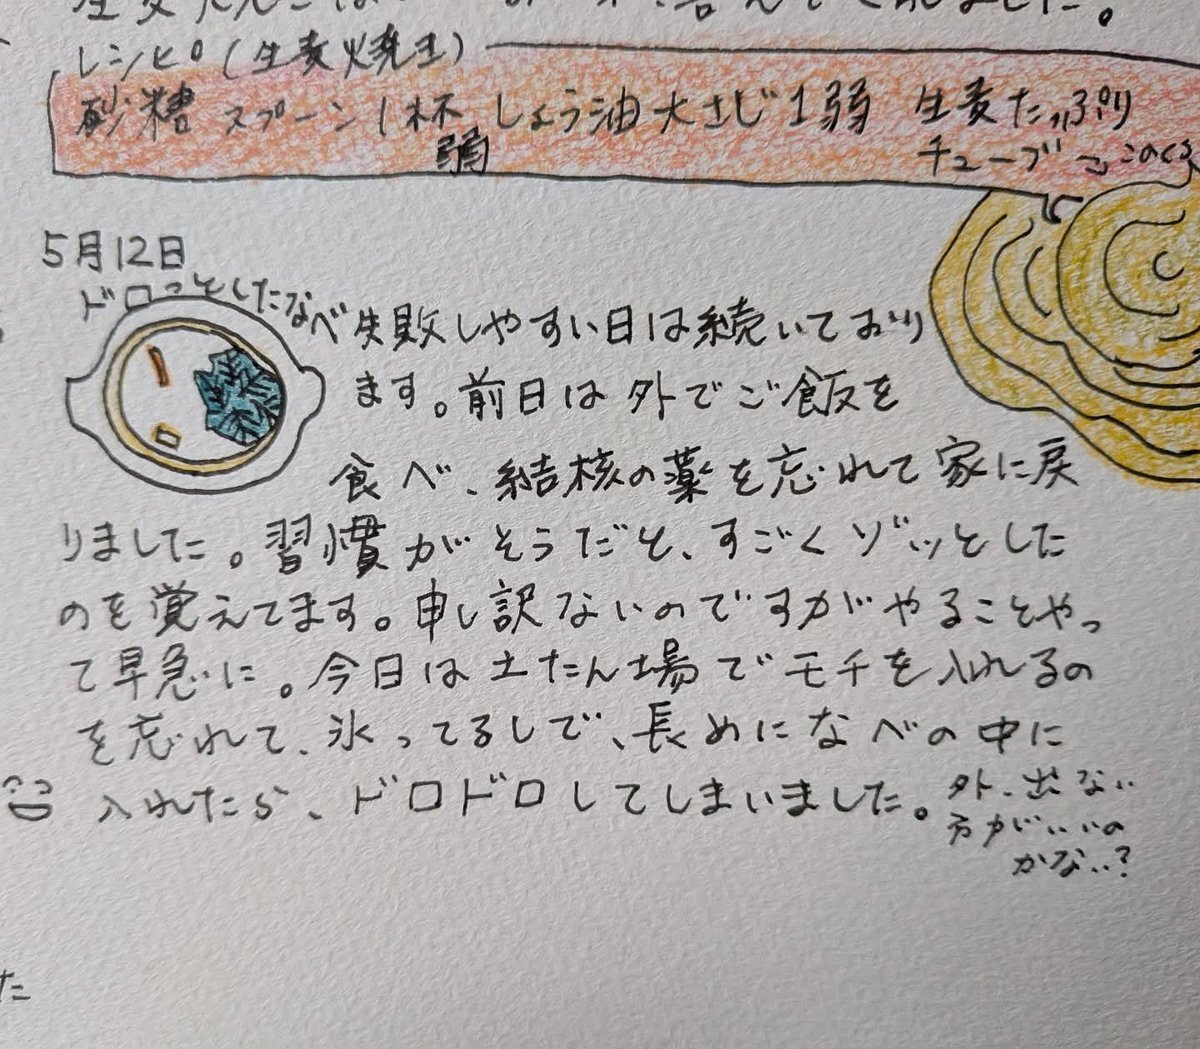 レシピ(生麦焼き)
砂糖 スプーン1杯弱 しょう油大さじ1弱 生麦たっぷり
チューブ このくら
5月12日
ドロっとしたなべ
失敗しやすい日は続いており
ます。前日は外でご飯を
食べ、結核の薬を忘れて家に戻
りました。習慣がそうだと、すごくゾッとした
のを覚えてます。申し訳ないのですがやることやっ
て早急に。今日は土たん場でモチを入れるの
を忘れて、氷ってるしで、長めになべの中に
入れたら、ドロドロしてしまいました。
外、出ない
方がいいの
かない?
た